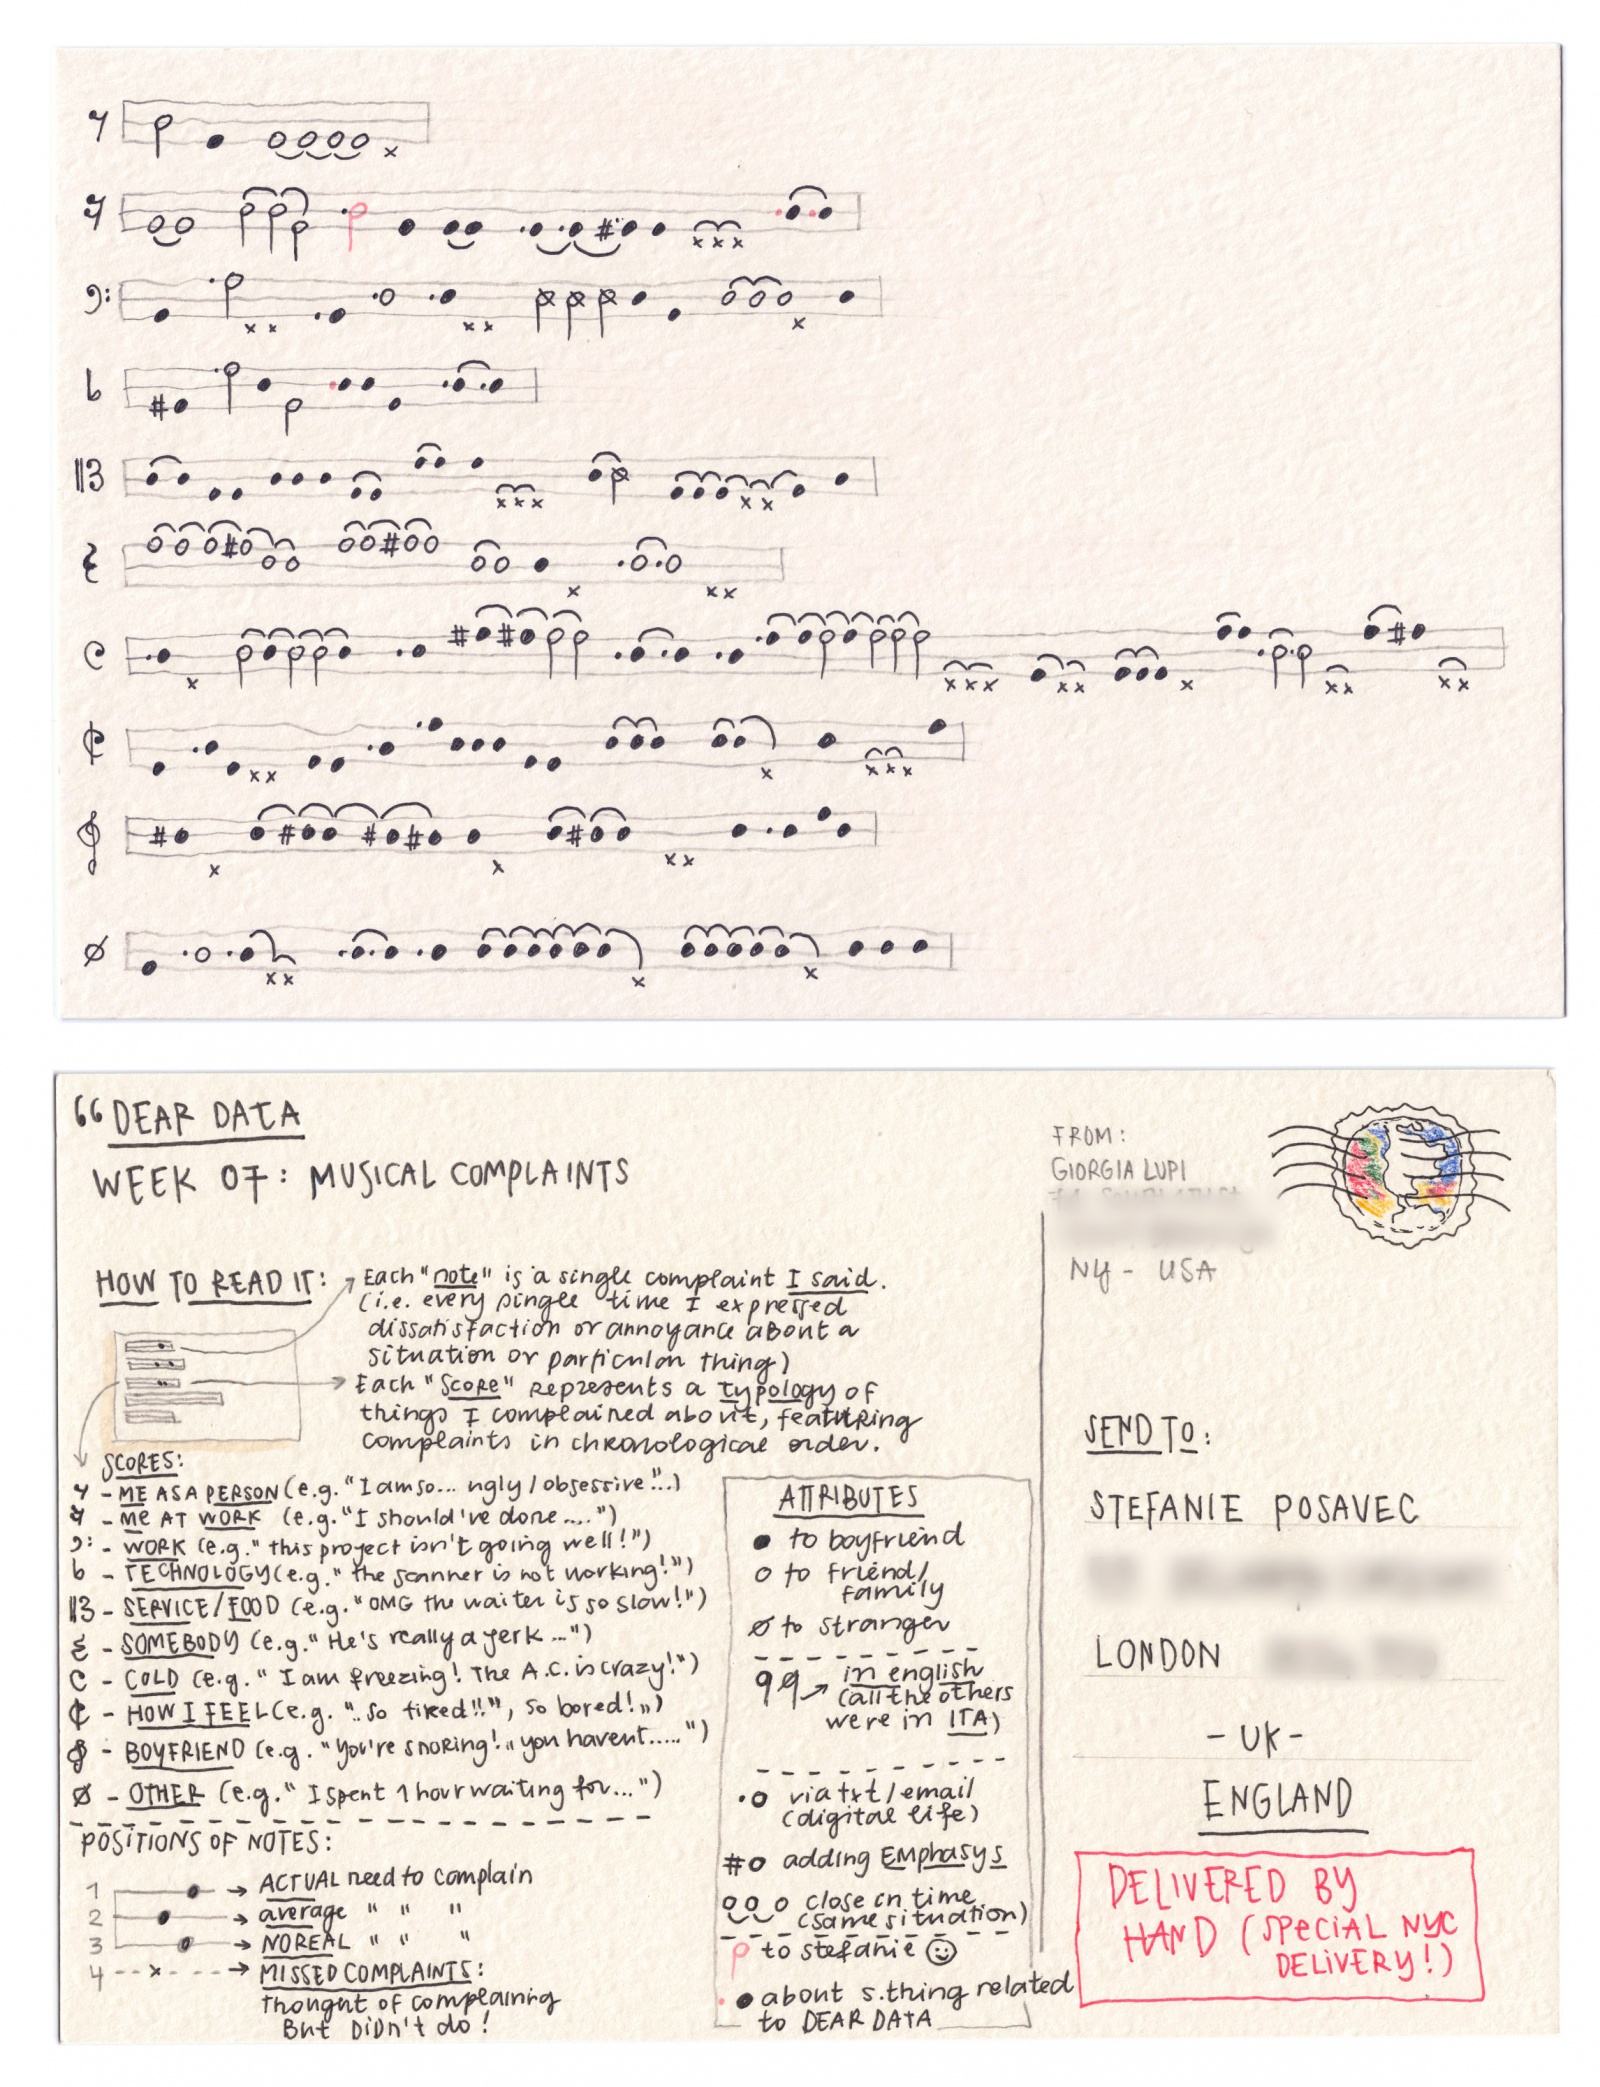 "DEAR DATA
WEEK 07: MUSICAL COMPLAINTS
HOW TO READ IT:
Each "note" is a single complaint I said.
(i.e. every single time I expressed
dissatisfaction or annoyance about a
situation or particular thing)
Each "SCORE" represents a typology of
things I complained about, featuring
complaints in chronological order.
SCORES:
- ME AS A PERSON (e.g. "I am so... ugly / obsessive"...)
- ME AT WORK (e.g. "I should've done....")
- WORK (e.g. "this project isn't going well!")
- TECHNOLOGY (e.g. "the scanner is not working!")
- SERVICE/FOOD (e.g. "OMG the waiter is so slow!")
- SOMEBODY (e.g. "He's really a jerk...")
- COLD (e.g. "I am freezing! The A.C. is crazy!")
- HOW I FEEL (e.g. "..so tired!!", so bored!")
- BOYFRIEND (e.g. "You're snoring!" you havent.....")
- OTHER (e.g. "I spent 1 hour waiting for...")
POSITIONS OF NOTES:
1 → ACTUAL need to complain
2 → average " " "
3 → NOREAL " " "
4 --x--- → MISSED COMPLAINTS:
thought of complaining
But DiDn't do!
ATTRIBUTES
to boyfriend
to friend/
family
to stranger
in english
(all the others
were in ITA)
via txt/email
(digital life)
#o adding EMPhasys
close in time
(same situation)
to stefanie
about s.thing related
to DEAR DATA
FROM:
GIORGIA LUPI
NY - USA
SEND TO:
STEFANIE POSAVEC
LONDON
- UK -
ENGLAND
DELIVERED BY
HAND (SPECIAL NYC
DELIVERY!)